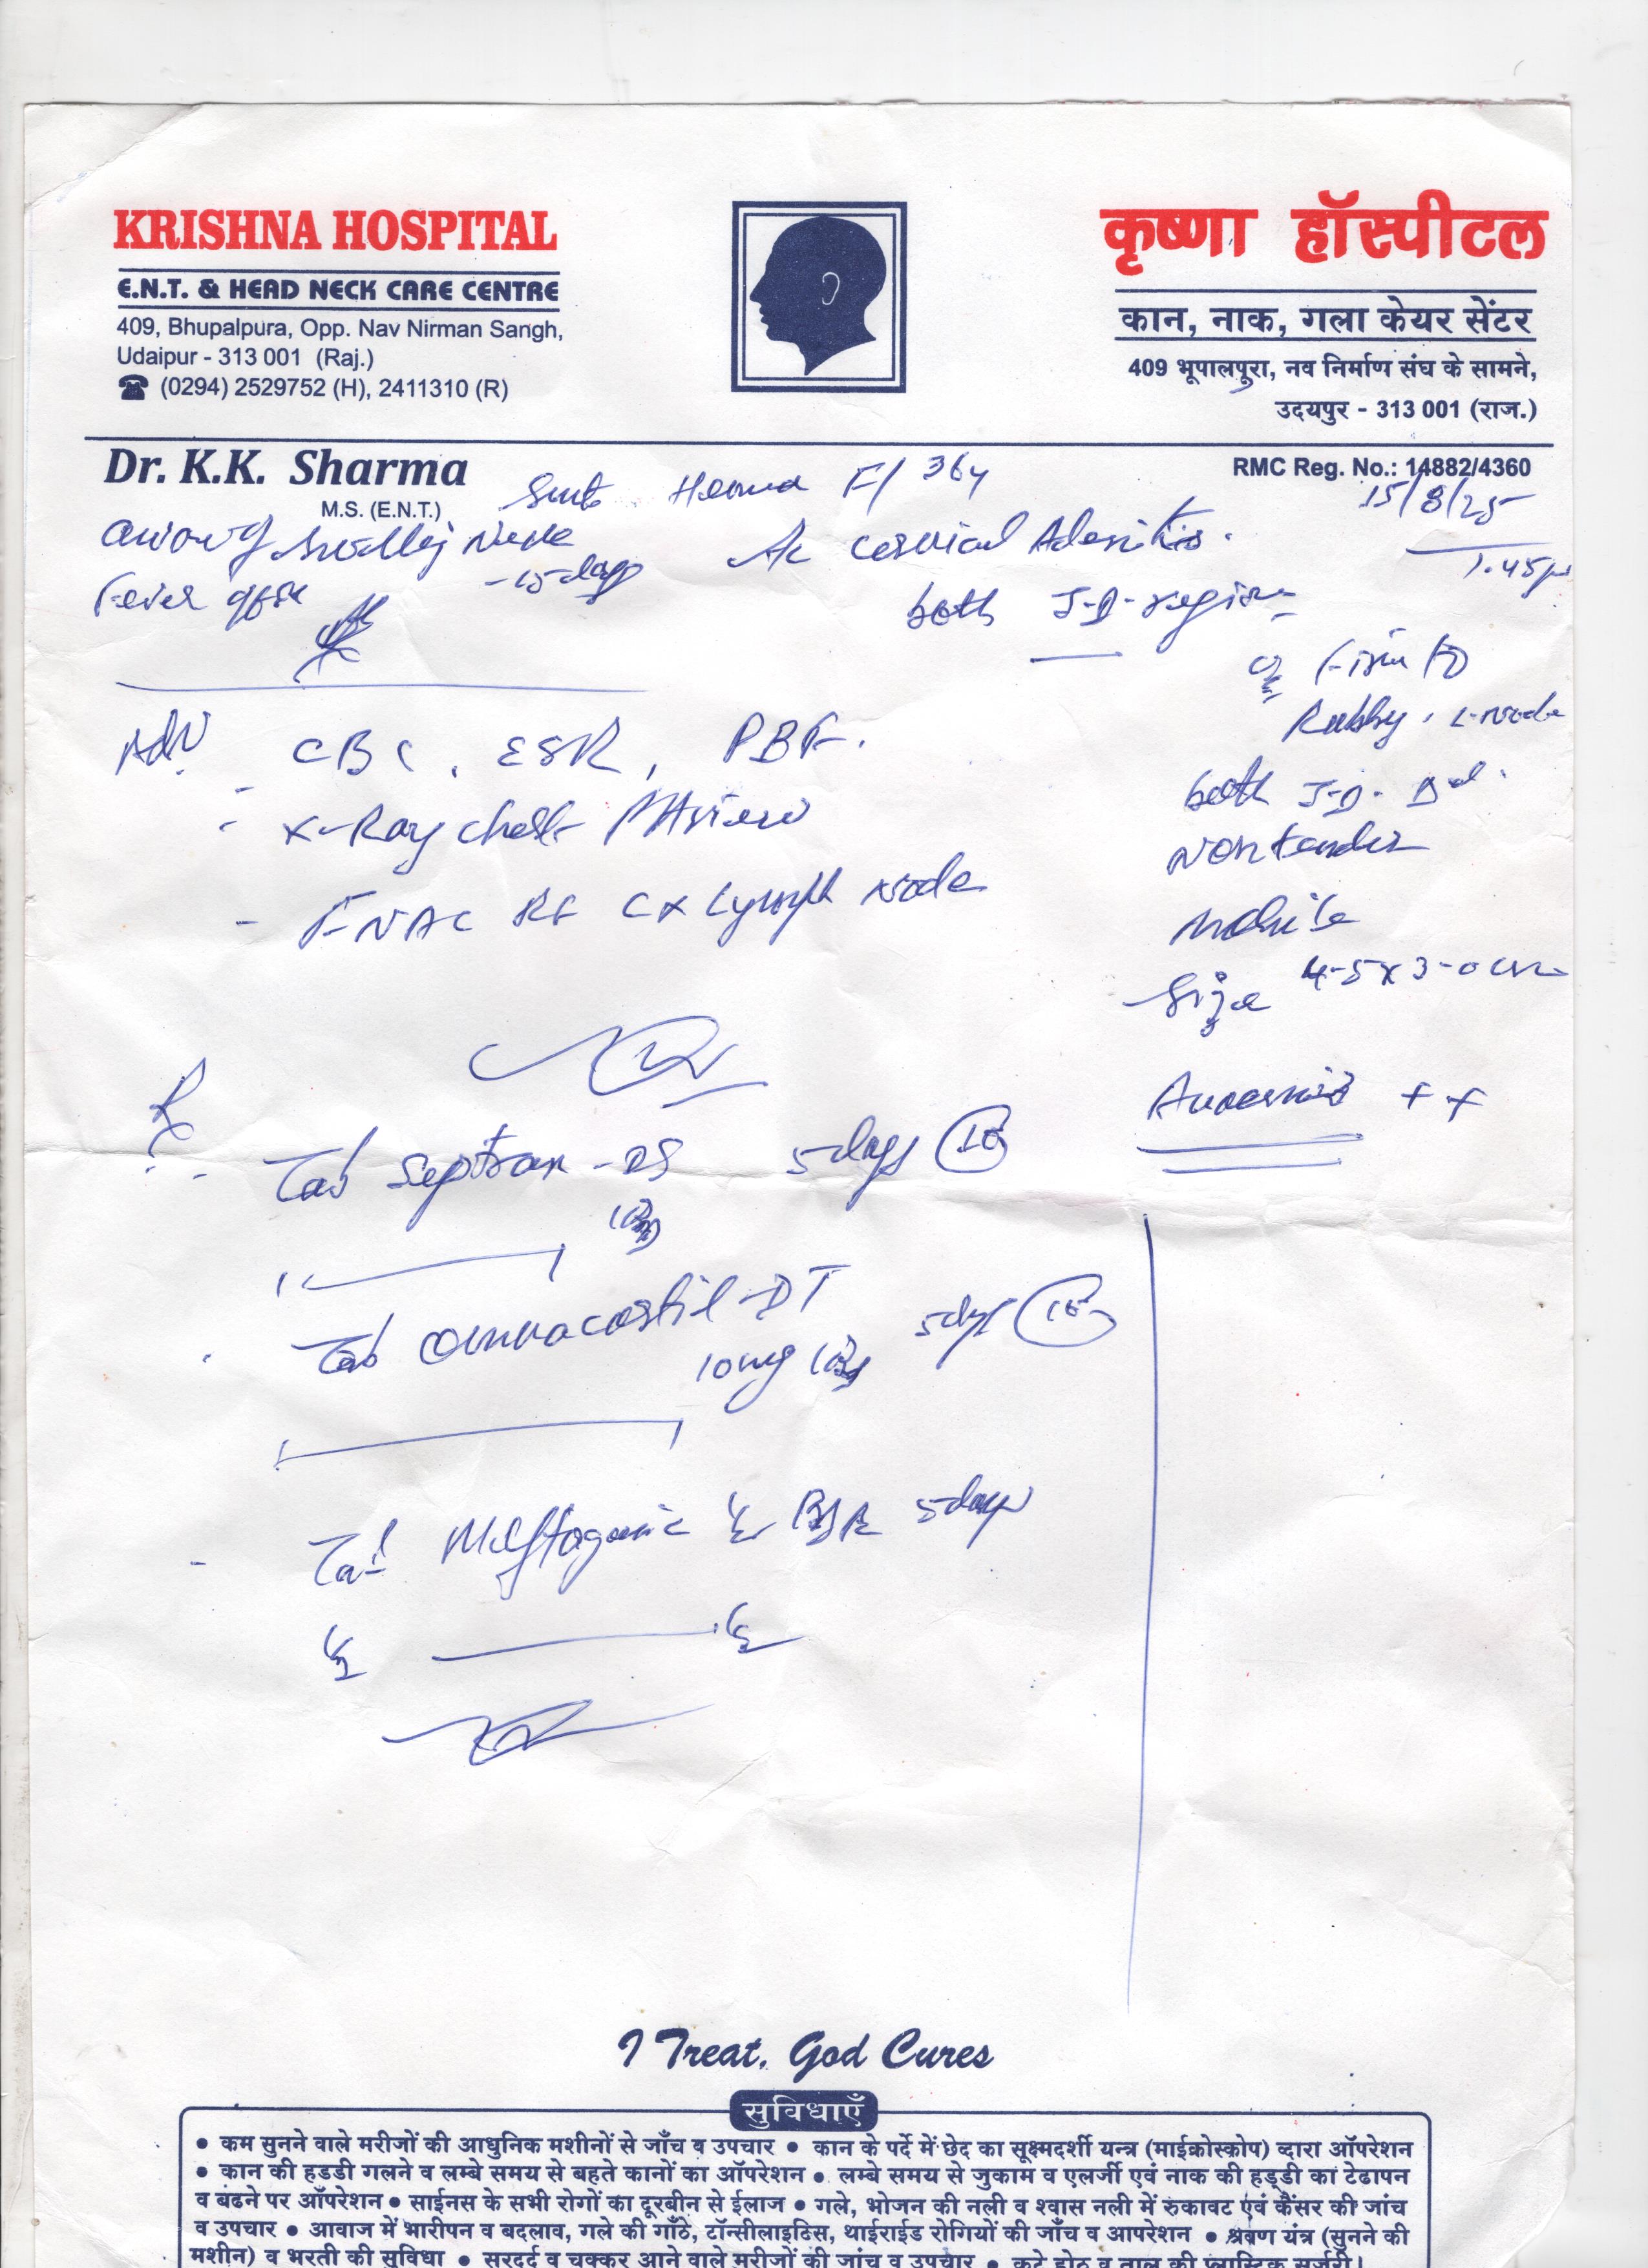 KRISHNA HOSPITAL
E.N.T. & HEAD NECK CARE CENTRE
409, Bhupalpura, Opp. Nav Nirman Sangh,
Udaipur - 313 001 (Raj.)
☎ (0294) 2529752 (H), 2411310 (R)
कृष्णा हॉस्पीटल
कान, नाक, गला केयर सेंटर
409 भूपालपुरा, नव निर्माण संघ के सामने,
उदयपुर - 313 001 (राज.)
Dr. K.K. Sharma
M.S. (E.N.T.)
RMC Reg. No.: 14882/4360
F/ 36y
15/8/25
1.45
Swelling Neck
Fever
-15 days
Ac cervical Adenitis.
both J-D-region
Firm to
Rubbery L-node
both J-D-
Non tender
Mobile
Size 4-5x3-0 cm
Anaemia ++
Adv
CBC, ESR, PBF.
- X-Ray chest PA view
- FNAC Rt Cx Lymph Node
Rx
- Tab Septran-DS 5 days (10)
Tab Omnacortil-DT
10mg 5 days (10)
- Tab 5 days
I Treat, God Cures
सुविधाएँ
• कम सुनने वाले मरीजों की आधुनिक मशीनों से जाँच व उपचार • कान के पर्दे में छेद का सूक्ष्मदर्शी यन्त्र (माईक्रोस्कोप) व्दारा ऑपरेशन
• कान की हडडी गलने व लम्बे समय से बहते कानों का ऑपरेशन • लम्बे समय से जुकाम व एलर्जी एवं नाक की हड्डी का टेढापन
व बढने पर ऑपरेशन • साईनस के सभी रोगों का दूरबीन से ईलाज • गले, भोजन की नली व श्वास नली में रुकावट एंव कैंसर की जांच
व उपचार • आवाज में भारीपन व बदलाव, गले की गाँठे, टॉन्सीलाइटिस, थाईराईड रोगियों की जाँच व आपरेशन • श्रवण यंत्र (सुनने की
मशीन) व भरती की सुविधा • सरदर्द व चक्कर आने वाले मरीजों की जांच व उपचार • कटे होठ व तालू की प्लास्टिक सर्जरी।